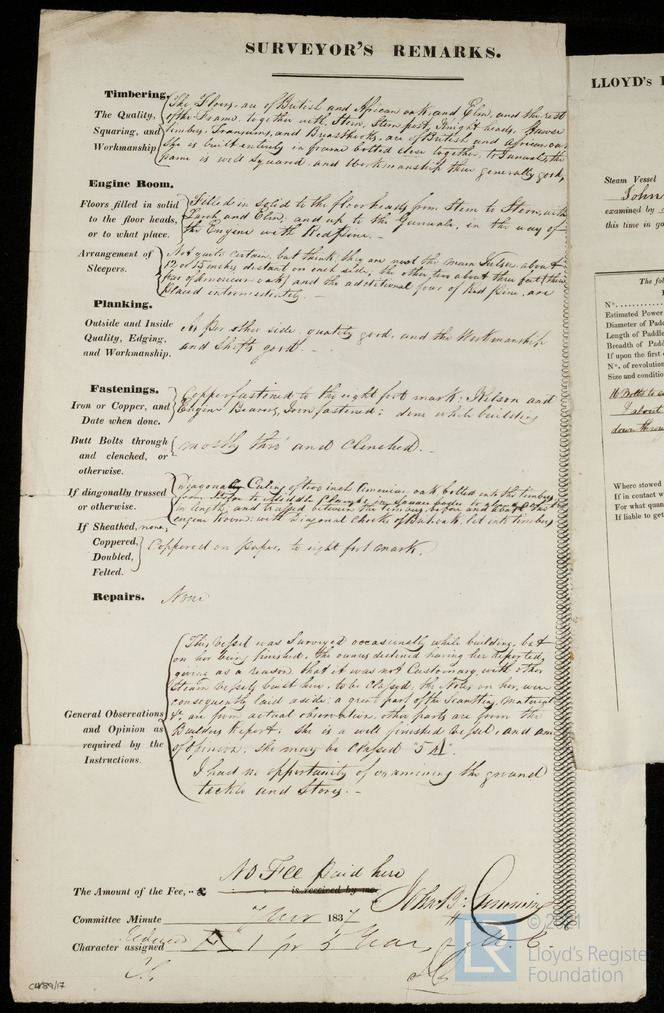 SURVEYOR'S REMARKS.
Timbering.
The Quality,
Squaring, and
Workmanship
The Floors, are of British and African oak, and Elm, and the rest
of the Frame, together with, Stem, Stern post, Knight heads, Hawse
timbers, Transums, and Breasthooks, are of British and African oak
She is built entirely in frame bolted close together, to Gunwale, the
frame is well squared, and Workmanship there generally good,
Engine Room.
Floors filled in solid
to the floor heads,
or to what place.
Filled in solid to the floor heads, from Stem to Stern, with
Larch and Elm, and up to the Gunwale, in the way of
the Engine with Red Pine.
Arrangement of
Sleepers.
Not quite certain, but think, they are
12 or 15 inches distant on each side, the other two about three feet
four of American oak, and the additional four of Red Pine, are
placed intermediately. —
Planking.
Outside and Inside
Quality, Edging,
and Workmanship.
As per other side, quality good, and the Workmanship
and Shifts good. —
Fastenings.
Iron or Copper, and
Date when done.
Copperfastened to the eight foot mark; Kelson and
Engine Bearers, Iron fastened; done while building
Butt Bolts through
and clenched, or
otherwise.
mostly thro' and Clenched. —
If diagonally trussed
or otherwise.
Diagonally Ceiling of two inch American oak bolted into the timbers
in length, and trussed between the timbers before and abaft the
engine room, with Diagonal Chocks of Brit. oak, let into timbers
If Sheathed, none,
Coppered,
Doubled,
Felted.
Coppered on paper, to eight foot mark.
Repairs.
None
General Observations
and Opinion as
required by the
Instructions.
This Vessel was Surveyed occasionally while building, but
on her being finished, the owners declined having her reported,
giving as a reason, that it was not Customary with other
Steam Vessels built here, to be Classed, the Notes on her, were
consequently laid aside; a great part of the Scantling, Material
&c. are from actual observation, other parts are from the
Builders Report; She is a well finished Vessel, and am
of Opinion, She may be Classed "5 A".
I had no opportunity of examining the ground
tackle and Stores. —
No Fee paid here
The Amount of the Fee, ·· £
is received by me,
John B. Cumming
Committee Minute
183
Character assigned
A 1 for 5 Years
CHB9/17
LLOYD's
Steam Vessel
John
examined by
this time in
The fol
No.
Estimated Power
Diameter of Padd
Length of Paddle
Breadth of Padd
If upon the first
No. of revolution
Size and condition
Where stowed
If in contact w
For what quan
If liable to get
LR
© 2021
Lloyd's Register
Foundation